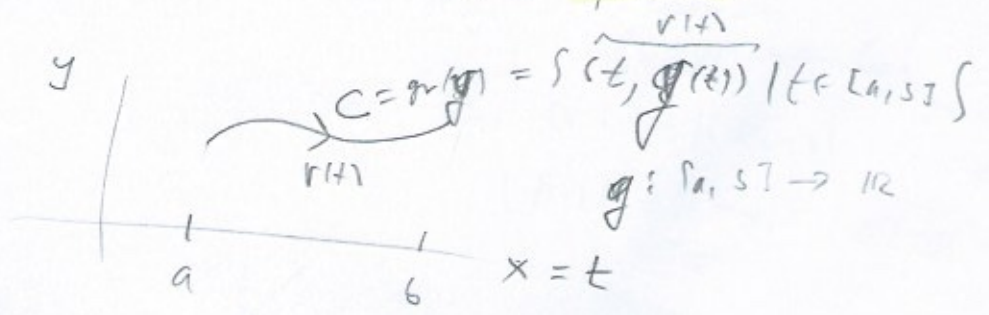 r(t)
y
C = gr(g) = { (t, g(t)) | t ∈ [a, b] }
r(t)
g : [a, b] → ℝ
a b x = t